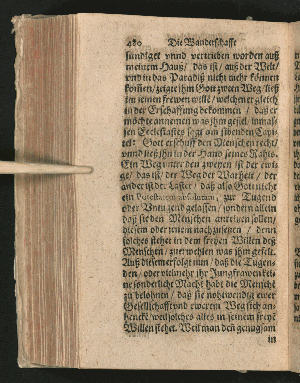 480 Die Wanderschafft
sündiget vnnd vertrieben worden auß
meinem Hauß/ das ist/ auß der Welt/
vnd in das Paradiß nicht mehr können
kommen/ zeigte ihm Gott zween Weg/ ließ
ihm seinen freyen wille/ welchen er gleich
in der Erschaffung bekommen/ daß er
möchte annemen was ihm gefel. inmas-
sen Ecclesiastes sagt am siebenden Capi-
tel: Gott erschuff den Menschen recht/
vnnd ließ ihn in der Hand seines Rahts.
Ein Weg vnter den zweyen ist der ewi-
ge/ das ist/ der Weg der Warheit/ der
ander ist der Laster/ daß also Gott nicht
ein Potestatem absolutam, zur Tugend
oder Vntugend gelassen/ sondern allein
daß sie den Menschen anreitzen sollen/
diesem oder jenem nachzusehen/ denn
solches stehet in dem freyen Willen deß
Menschen/ zuerwehlen was ihm gefelt.
Auß diesem erfolgt nun/ daß die Tugen-
den/ oder vielmehr ihr Jungfrawen kei-
ne sonderliche Macht habt die Mensche
zu belohnen/ daß sie nohtwendig ewer
Gesellschafft vnd ewrem Weg sich an-
hencke/ weil solches alles in seinem freyē
Willen stehet. Weil man den genugsam
im